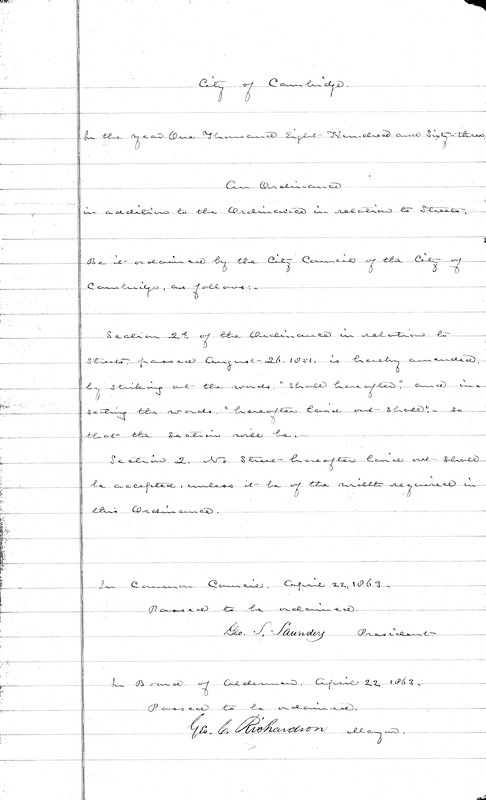 City of Cambridge.
In the year One Thousand Eight Hundred and Sixty-three
An Ordinance
in addition to the Ordinance in relation to Streets.
Be it ordained by the City Council of the City of
Cambridge, as follows:-
Section 2d of the Ordinance in relation to
Streets, passed August 26. 1851, is hereby amended,
by striking out the words "shall hereafter", and in-
serting the words "hereafter laid out shall"- so
that the section will be,
Section 2. No Street hereafter laid out shall
be accepted, unless it be of the width required in
this Ordinance.
In Common Council. April 22, 1863.
Passed to be ordained.
Geo. S. Saunders President
In Board of Aldermen. April 22 1863.
Passed to be ordained.
Geo. C. Richardson Mayor.